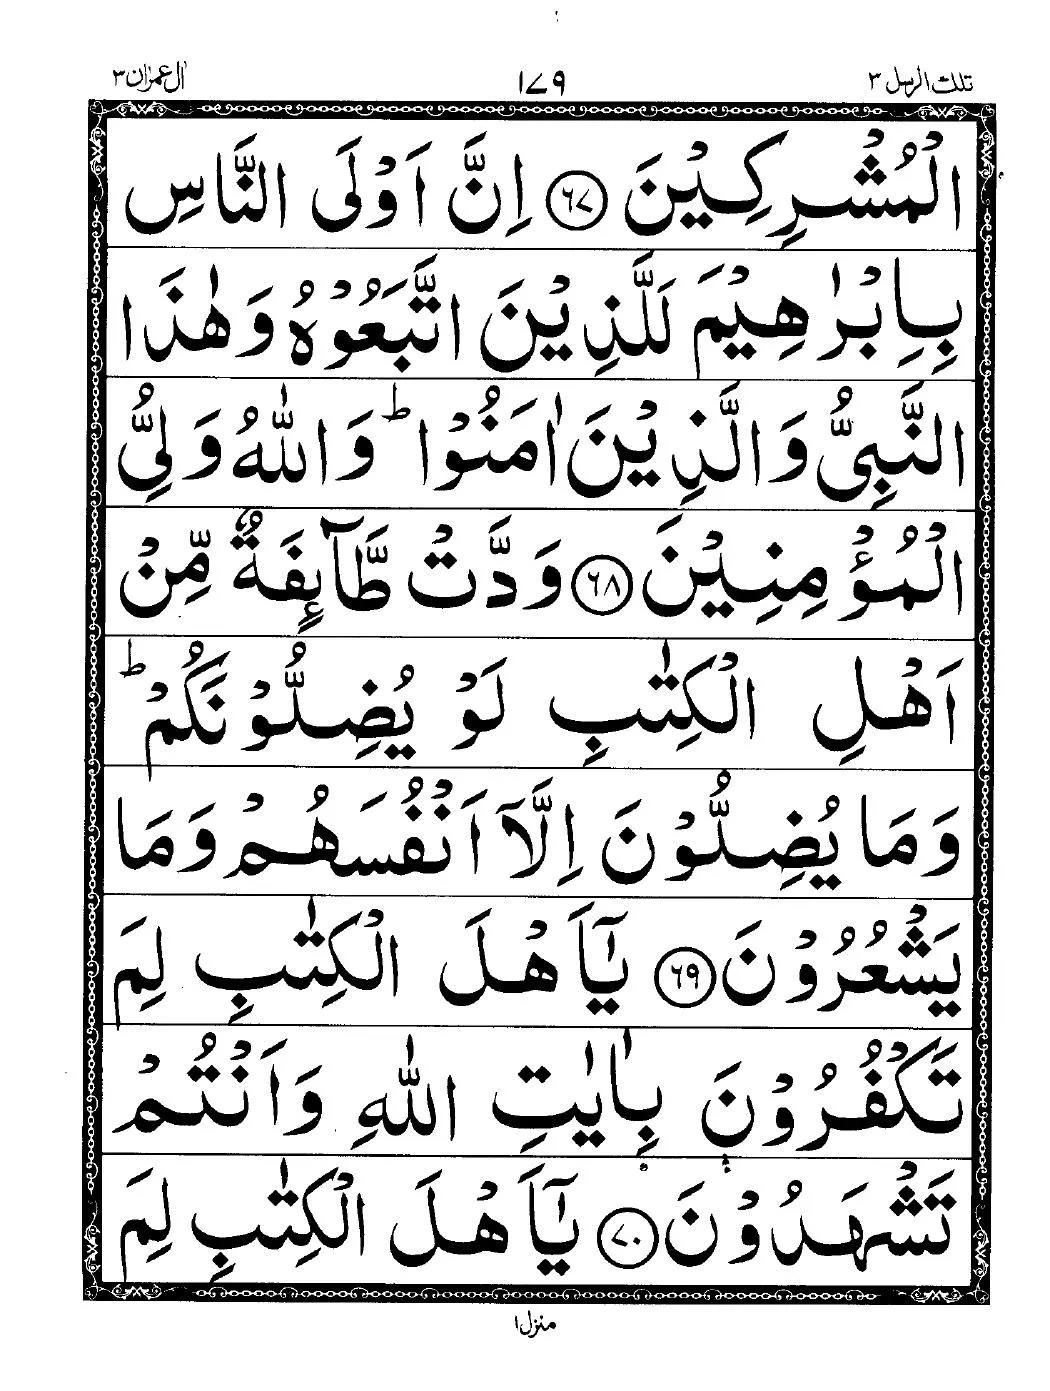 تلك الرسل ٣
١٧٩
اٰل عمرٰن ٣
الْمُشْرِكِيْنَ ۝٦٧ اِنَّ اَوْلَى النَّاسِ
بِاِبْرٰهِيْمَ لَلَّذِيْنَ اتَّبَعُوْهُ وَهٰذَا
النَّبِىُّ وَالَّذِيْنَ اٰمَنُوْا ؕ وَاللّٰهُ وَلِىُّ
الْمُؤْمِنِيْنَ ۝٦٨ وَدَّتْ طَّآئِفَةٌ مِّنْ
اَهْلِ الْكِتٰبِ لَوْ يُضِلُّوْنَكُمْ ؕ
وَمَا يُضِلُّوْنَ اِلَّاۤ اَنْفُسَهُمْ وَمَا
يَشْعُرُوْنَ ۝٦٩ يٰۤاَهْلَ الْكِتٰبِ لِمَ
تَكْفُرُوْنَ بِاٰيٰتِ اللّٰهِ وَاَنْتُمْ
تَشْهَدُوْنَ ۝٧٠ يٰۤاَهْلَ الْكِتٰبِ لِمَ
منزل ١